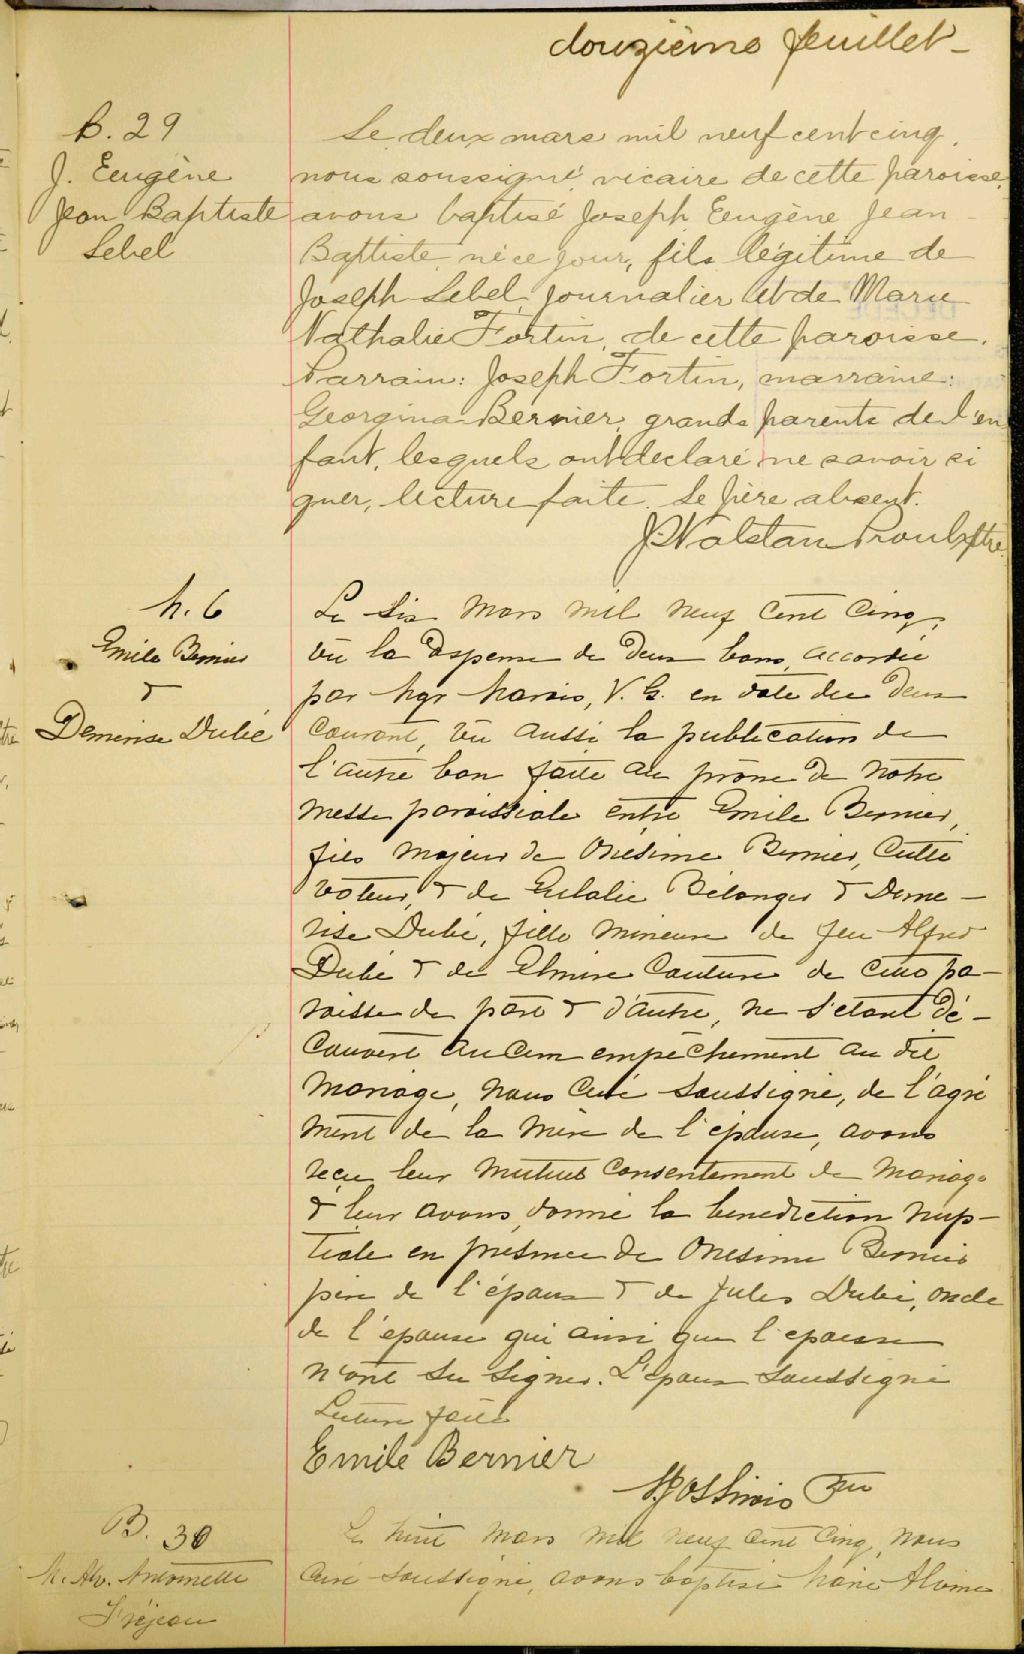 douzième feuillet -
B. 29
J. Eugène
Jean Baptiste
Lebel
Le deux mars mil neuf cent cinq,
nous soussigné, vicaire de cette paroisse,
avons baptisé Joseph Eugène Jean
Baptiste né ce jour, fils légitime de
Joseph Lebel journalier et de Marie
Nathalie Fortin, de cette paroisse.
Parrain: Joseph Fortin, marraine:
Georgina Bernier, grands parents de l'en
fant, lesquels ont déclaré ne savoir si
gner, lecture faite. Le père absent.
Proulx ptre.
M. 6
Emile Bernier
&
Demerise Dubé
Le six Mars mil neuf cent cinq,
vu la dispense de deux bans, accordée
par Mgr Marois, V. G. en date du deux
courant, vu aussi la publication de
l'autre ban faite au prône de notre
messe paroissiale entre Emile Bernier,
fils majeur de Onésime Bernier, culti
vateur, & de Eulalie Bélanger & Deme -
rise Dubé, fille mineure de feu Alfred
Dubé & de Elmire Couture de cette pa-
roisse de part & d'autre, ne s'étant dé -
couvert aucun empêchement au dit
mariage, nous curé soussigné, de l'agré
ment de la mère de l'épouse, avons
reçu leur mutuel consentement de mariage
& leur avons donné la bénédiction nup-
tiale en présence de Onésime Bernier
père de l'époux & de Jules Dubé, oncle
de l'épouse qui ainsi que l'épouse
n'ont su signer. L'époux soussigné
Lecture faite
Emile Bernier
Ptre
B. 30
M. Alv. Antoinette
Fréjeau
Le huit Mars mil neuf cent cinq, nous
curé soussigné, avons baptisé Marie Alvine